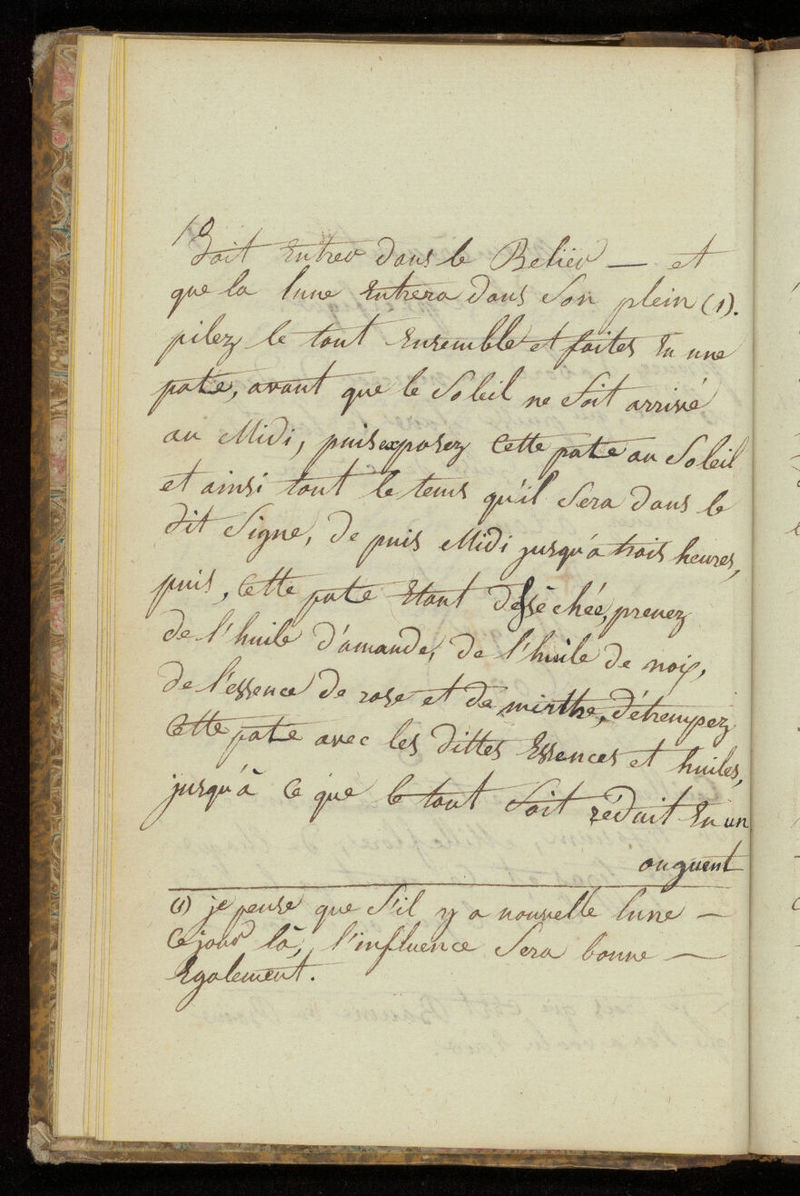 10
Doit Entrer dans le Belier — et
que la lune Entrera dans Son plein (1).
pilez le tout Ensemble et faites En une
pate, avant que le Soleil ne Soit arrivé
au Midi, puis exposez Cette pate au Soleil
et ainsi tout le tems qu'il Sera dans le
dit Signe, de puis Midi jusqu'a trois heures,
puis, Cette pate Etant desséchée, prenez
de l'huile d'amande, de l'huile de noix,
de l'essence de rose et de mirthe, détrempez
Cette pate avec les dittes Essences et huiles,
jusqu'à Ce que le tout Soit réduit En un
onguent
(1) je pense que S'il y a nouvelle lune —
Ce jour là, l'influence Sera bonne —
Egalement.